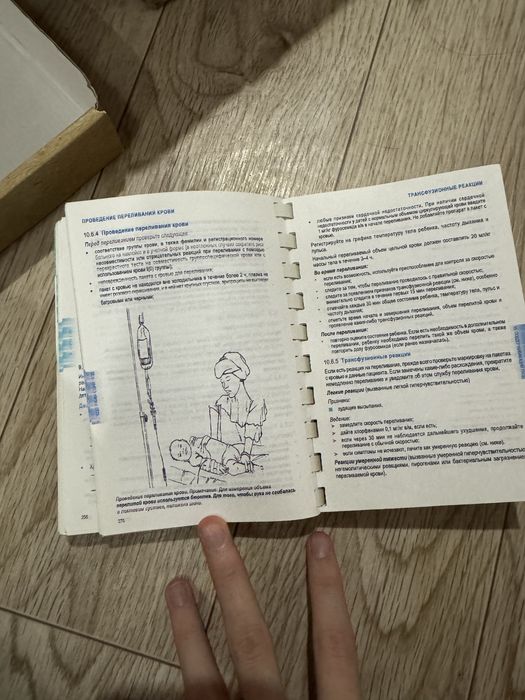 ПРОВЕДЕНИЕ ПЕРЕЛИВАНИЯ КРОВИ
10.6.4 Проведение переливания крови
Перед переливанием проверьте следующее:
• соответствие группы крови, а также фамилии и регистрационного номера
использования крови I(0) группы);
• неповрежденность пакета с кровью для переливания;
• пакет с кровью не находился вне холодильника в течение более 2 ч, плазма не
багровыми или черными;
Проведение переливания крови. Примечание: Для измерения объема
перелитой крови используется бюретка. Для того, чтобы рука не сгибалась
в локтевом суставе, наложена шина.
256
276
ТРАНСФУЗИОННЫЕ РЕАКЦИИ
• любые признаки сердечной недостаточности. При наличии сердечной
недостаточности у детей с нормальным объемом циркулирующей крови введите
1 мг/кг фуросемида в/в в начале переливания. Не добавляйте препарат в пакет с
кровью.
Регистрируйте на графике температуру тела ребенка, частоту дыхания и
пульса.
Начальный переливаемый объем цельной крови должен составлять 20 мл/кг
массы тела в течение 3–4 ч.
Во время переливания:
• если есть возможность, используйте приспособление для контроля за скоростью
переливания;
• следите за тем, чтобы переливание проводилось с правильной скоростью;
• следите за появлением признаков трансфузионной реакции (см. ниже), особенно
внимательно следите в течение первых 15 мин переливания;
• отмечайте каждые 30 мин общее состояние ребенка, температуру тела, пульс и
частоту дыхания;
• отметьте время начала и завершения переливания, объем перелитой крови и
проявление каких-либо трансфузионных реакций.
После переливания:
• повторно оцените состояние ребенка. Если есть необходимость в дополнительном
переливании, ребенку необходимо перелить такой же объем крови, а также
повторить дозу фуросемида (если ранее назначалась).
10.6.5 Трансфузионные реакции
Если есть реакция на переливание, прежде всего проверьте маркировку на пакетах
с кровью и данные пациента. Если замечены какие-либо расхождения, прекратите
немедленно переливание и уведомите об этом службу переливания крови.
Легкие реакции (вызванные легкой гиперчувствительностью)
Признаки:
■ зудящие высыпания.
Ведение:
➤ замедлите скорость переливания;
➤ дайте хлорфенамин 0,1 мг/кг в/м, если есть;
➤ если через 30 мин не наблюдается дальнейшего ухудшения, продолжайте
переливание с обычной скоростью;
➤ если симптомы не исчезают, лечите как умеренную реакцию (см. ниже).
Реакции умеренной тяжести (вызванные умеренной гиперчувствительностью,
негемолитическими реакциями, пирогенами или бактериальным загрязнением
переливаемой крови).